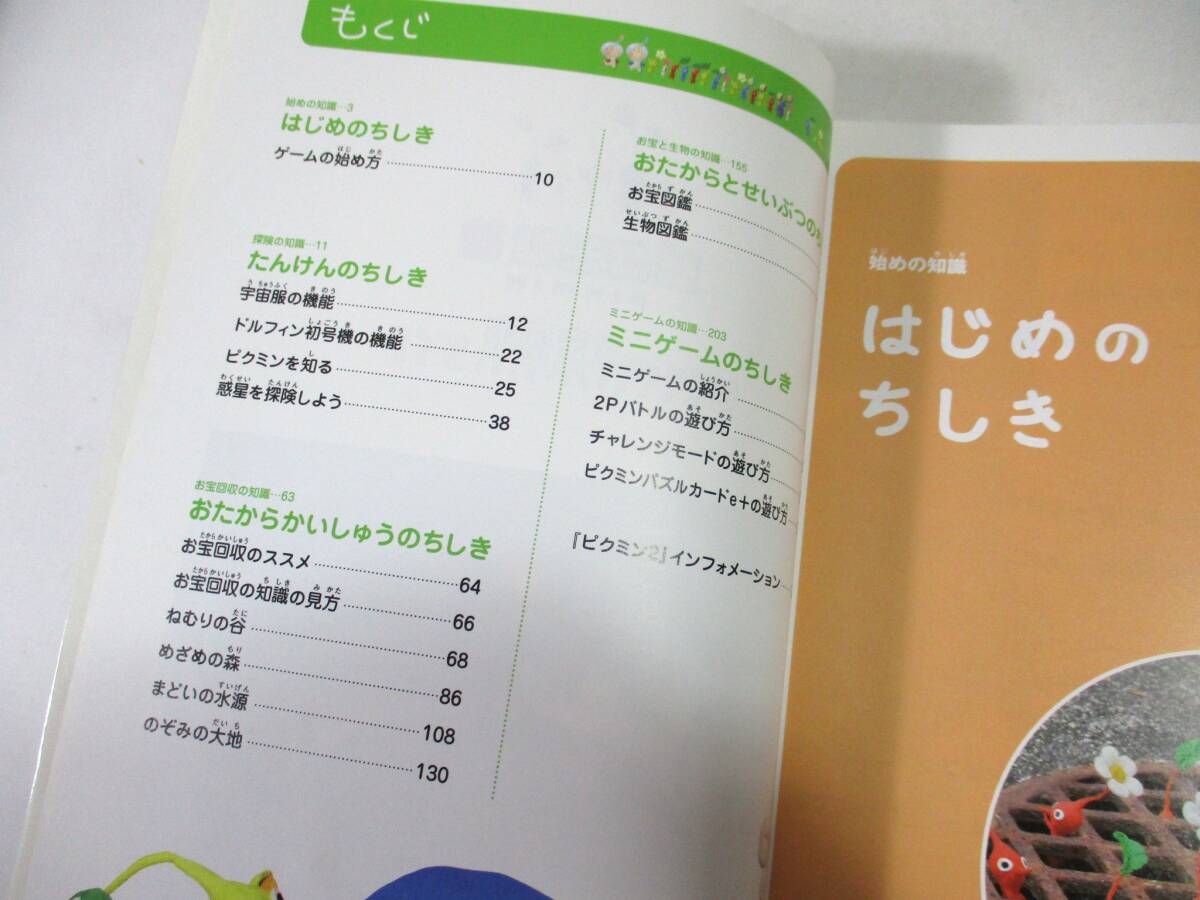 もくじ
始めの知識…3
はじめのちしき
ゲームの始め方 10
探険の知識…11
たんけんのちしき
宇宙服の機能 12
ドルフィン初号機の機能 22
ピクミンを知る 25
惑星を探険しよう 38
お宝回収の知識…63
おたからかいしゅうのちしき
お宝回収のススメ 64
お宝回収の知識の見方 66
ねむりの谷 68
めざめの森 86
まどいの水源 108
のぞみの大地 130
お宝と生物の知識…155
おたからとせいぶつの
お宝図鑑
生物図鑑
ミニゲームの知識…203
ミニゲームのちしき
ミニゲームの紹介
2Pバトルの遊び方
チャレンジモードの遊び方
ピクミンパズルカードe+の遊び方
『ピクミン2』インフォメーション
始めの知識
はじめの
ちしき